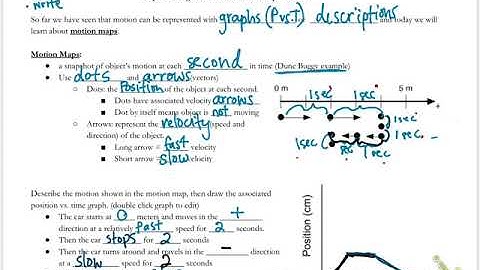 • write
So far we have seen that motion can be represented with graphs (P vs. T) descriptions and today we will
learn about motion maps.
Motion Maps:
• a snapshot of object's motion at each second in time (Dune Buggy example)
• Use dots and arrows (vectors)
○ Dots: the Position of the object at each second.
■ Dots have associated velocity arrows
■ Dot by itself means object is not moving
○ Arrows: represent the velocity (speed and
direction) of the object.
■ Long arrow = fast velocity
■ Short arrow = slow velocity
1sec 1sec
0 m 5 m
+
1sec
1sec sec 1sec
Describe the motion shown in the motion map, then draw the associated
position vs. time graph. (double click graph to edit)
• The car starts at 0 meters and moves in the +
direction at a relatively fast speed for 2 seconds.
• Then the car stops for 2 seconds
• Then the car turns around and travels in the − direction
at a slow speed for 2 seconds
Position (cm)